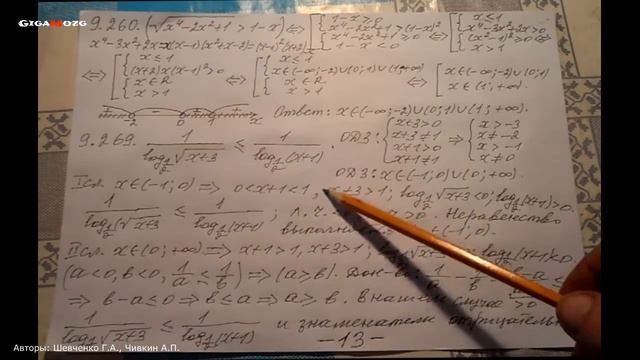 GIGAMOZG
9.260. (√x⁴-2x²+1 > 1-x) ⇔ [{1-x≥0 x⁴-2x²+1>(1-x)² {x⁴-2x²+1≥0 1-x<0 ⇔ [{x≤1 x⁴-3x²+2x>0 {(x²-1)²≥0 x>1
x⁴-3x²+2x=x(x-1)(x²+x-2)=x(x-1)²(x+2)
⇔ [{x≤1 (x+2)x(x-1)²>0 {x∈R x>1 ⇔ [{x≤1 x∈(-∞;-2)∪(0;1)∪(1;+∞) {x∈R x>1 ⇔ [x∈(-∞;-2)∪(0;1) x∈(1;+∞).
-2 0 x Ответ: x∈(-∞;-2)∪(0;1)∪(1;+∞).
9.269. 1/log₁/₂√x+3 ≤ 1/log₁/₂(x+1). ОДЗ: {x+3>0 x+3≠1 x+1>0 x+1≠1 ⇒ {x>-3 x≠-2 x>-1 x≠0
ОДЗ: x∈(-1;0)∪(0;+∞).
I сл. x∈(-1;0) ⇒ 0<x+1<1, x+3>1; log₁/₂√x+3<0; log₁/₂(x+1)>0.
1/log₁/₂√x+3 ≤ 1/log₁/₂(x+1); л.ч. >0. Неравенство
выполн (-1;0).
II сл. x∈(0;+∞) ⇒ x+1>1, x+3>1; log₁/₂√x+3 log₁/₂(x+1)<0.
(a<0, b<0, 1/a ≤ 1/b) ⇒ (a≥b). Док-во: 1/a - 1/b b-a ≤0
⇒ b-a≤0 ⇒ b≤a ⇒ a≥b. В нашем случае >0
1/log₁/₂√x+3 ≤ 1/log₁/₂(x+1) и знаменатели отрицательн
-13-
Авторы: Шевченко Г.А., Чивкин А.П.